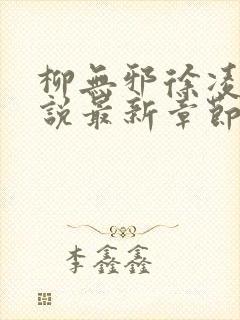 柳無邪徐凌
說最新章節
李鑫鑫